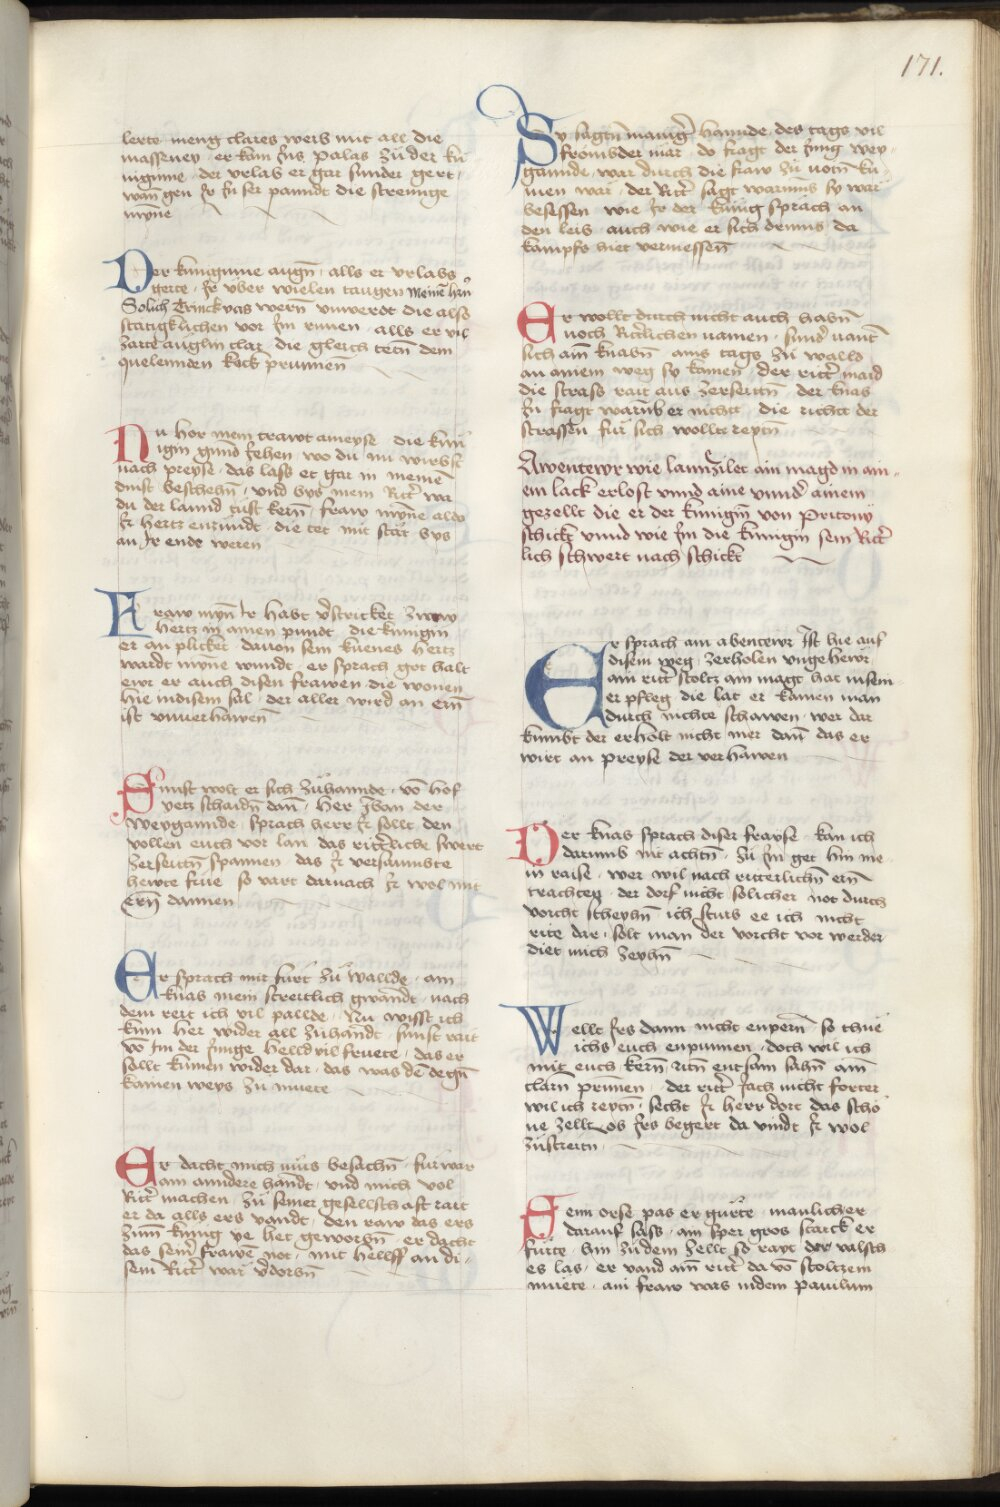 171.
lerto meng clares weib mit all die
masseney · er kam Ins palas zu der ku
nigynne · der vrlab er gar sunder gert ·
wan̄ gen Ir In ser pannt die strennge
mÿne
Der kunigynne augn̄ · alls er vrlabs
gerte · Ir vber wielen taugen Meinē hrn̄
Solich Trinckvas wern̄ vnwerdt die also
statigklichen vor Im rynnen · alls er vil
zarte auglin clar · die gleich tetn̄ dem
quelennden keck prunnen
Nu hor mein trawt ameyse · die kun
igin gund sehen · wo du nu wirbst
nach preyse · das lass er gar in meinē
dinst beschehn̄ · vnd bys mein Rittr̄ wa
du der lannd tust kern̄ · fraw mÿne aldo
Ir hertz enzundt · die tet mit stat bys
an Ir ende weren
Fraw mÿn Ir habt v̄stricket zway
hertz in ainen pundt · die kunigin
er an plicket · dauon sein kuenes hertz
wardt mÿne wundt · er sprach got halt
ewr er auch disen frawen · die wonen
hie indisem sal · der aller wird an ern̄
ist vnuerhawen
Sunst wolt er sich zuhannde · vō hof
yetz schaidn̄ dan̄ · her Iban der
weygannde · sprach herr Ir sollt den
vollen euch vor lan · das ritt̄rliche swert
zerseitn̄ spannen · das Ir versaumbte
hewte frue · so vart darnach Ir wol mit
Ern̄ dannen
Er sprach mir furt zu wallde · ain
knab mein streitlich gwandt · nach
dem reit ich vil pallde · Nu wisst ich
kum her wider all zuhandt · sunst rait
vō Im der Junge helld vil fruete · das er
sollt kumen wider dar · das was dē degn̄
kainen weys zu muete
Er dacht mich muss besachn̄ · fur war
ain anndere handt · vnd mich vol
Rittr̄ machen · zu seiner gesellschaft rait
er da alls ers vandt · den raw das ers
zum̄ kunig ye het geworbn̄ · er dacht
das sein̄ frawē not · mit hellff an di ·
sem Rittr̄ war v̄dorbn̄
Sy sagtn̄ manigr̄ hannde · des tags vil
frombder mar · do fragt der Jung wey ·
gannde · war durch die fraw zu notn̄ ku ·
men war · der Rittr̄ sagt warumb sy war
besessen · wie Ir der kunig sprach an
den leib · auch wie er sich denns da
kampfs hiet vermessen̄
Er wollt durch nicht auch habn̄
noch Ritt̄lichen namen · sund̄ nant
sich ain̄ knabn̄ · ains tags zu walld
an ainem weg sy kamen · Der rittr̄ maid
die strass rait aus zerseitn̄ · der knab
In fragt warub er nicht · die richte der
strassen fur sich wollte reytn̄
Awentewr wie lannzilet ain magd in ain ·
em lack erlost vnnd aine vnnd̄ ainem
gezellt die er der kunigin̄ von Pritony
schickt vnnd wie Im die kunigin sein Rittr̄
lich schwert nach schickt
Er sprach ain abentewr Ist hie auf
disem weg · zerholen vngehewr
ain rittr̄ stoltz ain magt hat in sein ·
er pfleg · die lat er kainen man
durch nichte schawen · wer dar
kumbt der erholt nicht mer dan̄ das er
wirt an preyse der verhawen
Der knab sprach diser frayse · kan ich
darumb nit achtn̄ · zu Im get hin me ·
in raise · wer wil nach ritterlichn̄ ern̄
trachten · der dorf nicht solicher not durch
vorcht scheyhn̄ · ich sturb ee ich nicht
rite dar · solt man der vorcht vor werder
diet mich zeyhn̄
Wellt Irs dann nicht enpern̄ · so thue
ichs euch enpunnen · doch wil ich
mit euch kern̄ · Ritn̄ entsam sahn̄ ain̄
clarn̄ prunen · der rittr̄ Jach nicht forter
wil ich reytn̄ · secht Ir herr dort das scho
ne zellt · ob Irs begert da vindt Ir wol
zustreitn̄
Seim orse pas er gurte · manlicher
darauf sass · ain sper gros starck er
furte · hin zu dem zellt so rayt der valsch
es las · er vand ain̄ rittr̄ da vō stoltzem
muete · ain fraw was indem pauilum